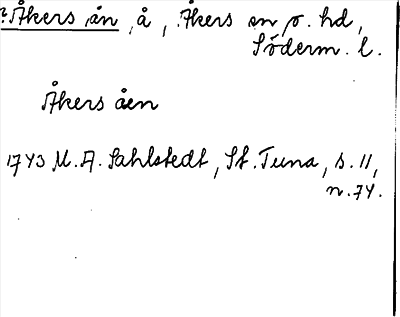 ?Åkers ån, å, Åkers sn o. hd,
Söderm. l.
Åkers åen
1743 M. A. Sahlstedt, St. Tuna, s. 11,
n. 74.